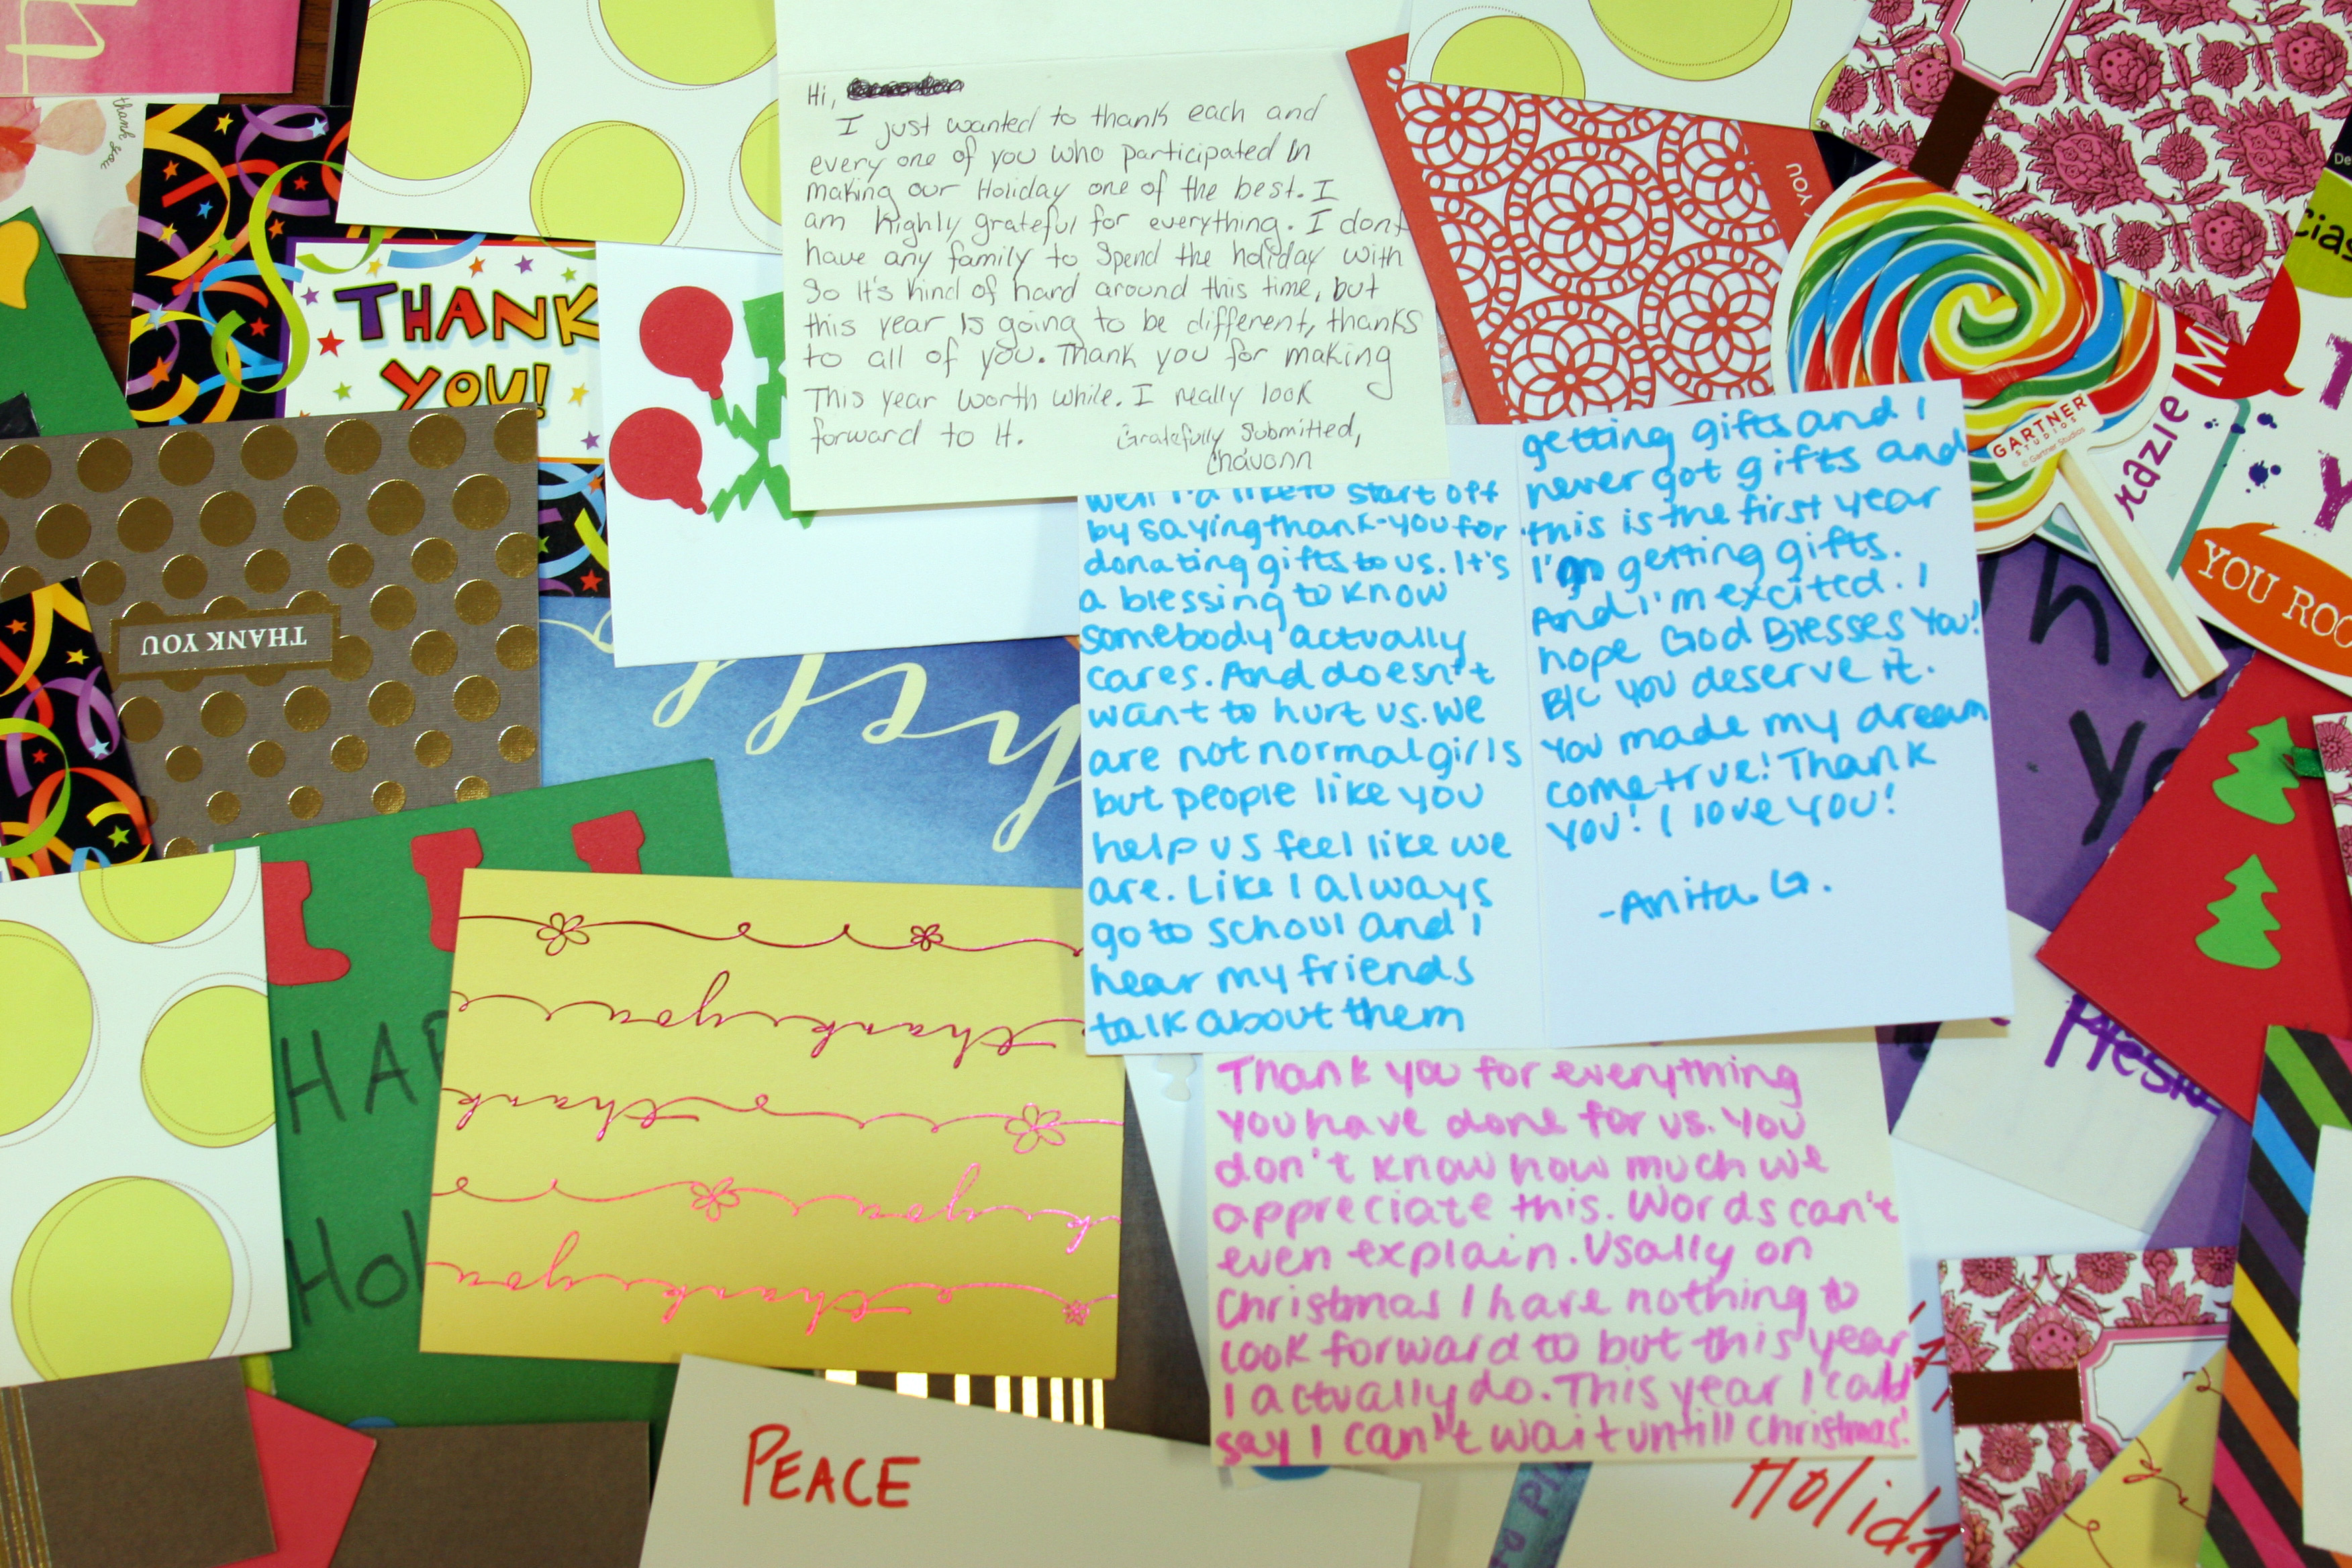 thank you
THANK
YOU!
THANK YOU
Hi,
I just wanted to thank each and
every one of you who participated in
making our Holiday one of the best. I
am highly grateful for everything. I dont
have any family to spend the holiday with
so it's kind of hard around this time, but
this year is going to be different, thanks
to all of you. Thank you for making
This year worth while. I really look
forward to it.
Gratefully Submitted,
Chavonn
YOU
GARTNER
STUDIOS
© Gartner Studios
YOU ROC
well I'd like to start off
by saying thank-you for
donating gifts to us. It's
a blessing to know
somebody actually
cares. And doesn't
want to hurt us. We
are not normal girls
but people like you
help us feel like we
are. Like I always
go to school and I
hear my friends
talk about them
getting gifts and I
never got gifts and
this is the first year
I'm getting gifts.
And I'm excited. I
hope God Blesses You!
B/C you deserve it.
You made my dream
come true! Thank
you! I love you!
-Anita G.
Thank you for everything
you have done for us. You
don't know how much we
appreciate this. Words can't
even explain. Usally on
Christmas I have nothing to
look forward to but this year
I actually do. This year I could
say I can't wait untill Christmas!
thank you
thank
k you
thank you
HAP
Hol
PEACE
Holida